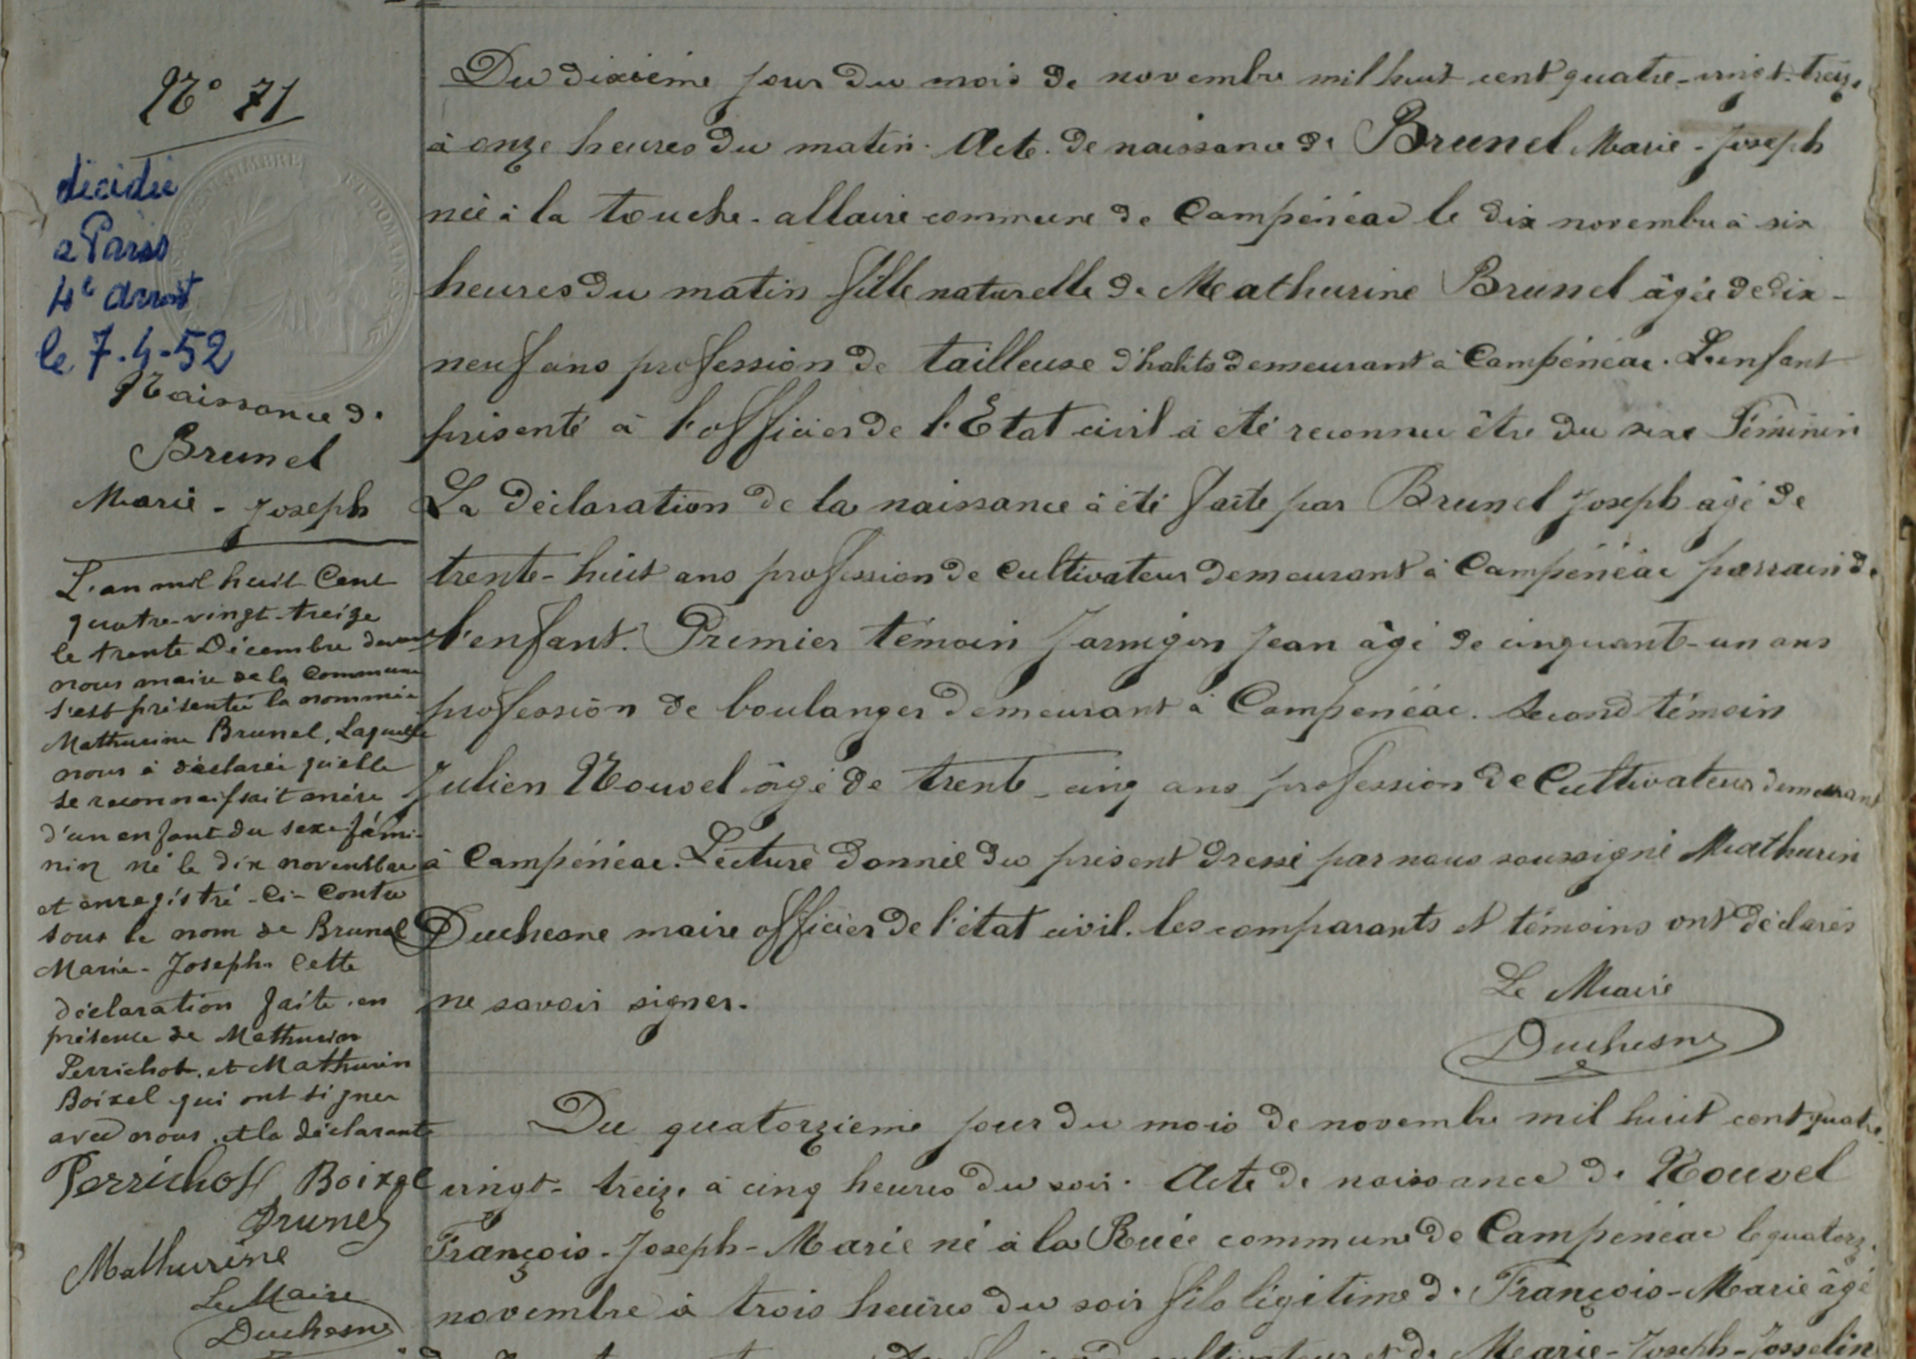 N° 71
décidée
a Paris
4e arrᵗ
le 7-4-52
Naissance de
Brunel
Marie - Joseph
L'an mil huit Cent
quatre-vingt-treize
le trente Décembre devant
nous maire de la Commune
s'est présentée la nommée
Mathurine Brunel, Laquelle
nous à déclarée qu'elle
se reconnaissait mère
d'un enfant du sexe fémi-
nin né le dix novembre
et enregistré - Ci - Contre
sous le nom de Brunel
Marie - Joseph. Cette
déclaration faite en
présence de Mathurin
Perrichot, et Mathurin
Boixel qui ont signer
avec nous, et la déclarante
Perrichot Boixel
Brunel
Mathurine
Le Maire
Duchesne
Du dixième jour du mois de novembre mil huit cent quatre-vingt-treize
à onze heures du matin. Acte de naissance de Brunel Marie - Joseph
née à la touche - allaire commune de Campénéac le dix novembre à six
heures du matin fille naturelle de Mathurine Brunel âgée de dix-
neuf ans profession de tailleuse d'habits demeurant à Campénéac. L'enfant
présenté à l'officier de l'Etat civil à été reconnu être du sexe Féminin
La déclaration de la naissance à été faite par Brunel Joseph âgé de
trente-huit ans profession de Cultivateur demeurant à Campénéac parrain de
l'enfant. Premier témoin Jarnigon Jean âgé de cinquante-un ans
profession de boulanger demeurant à Campénéac. Second témoin
Julien Nouvel âgé de trente-cinq ans profession de Cultivateur demeurant
à Campénéac. Lecture donnée du présent dressé par nous soussigné Mathurin
Duchesne maire officier de l'état civil. les comparants et témoins ont déclarés
ne savoir signer.
Le Maire
Duchesne
Du quatorzième jour du mois de novembre mil huit cent quatre-
vingt-treize à cinq heures du soir. Acte de naissance de Nouvel
François - Joseph - Marie né à la Ruée commune de Campénéac le quatorze
novembre à trois heures du soir fils légitime de François-Marie âgé
cultivateur et de Marie-Joseph-Josselin